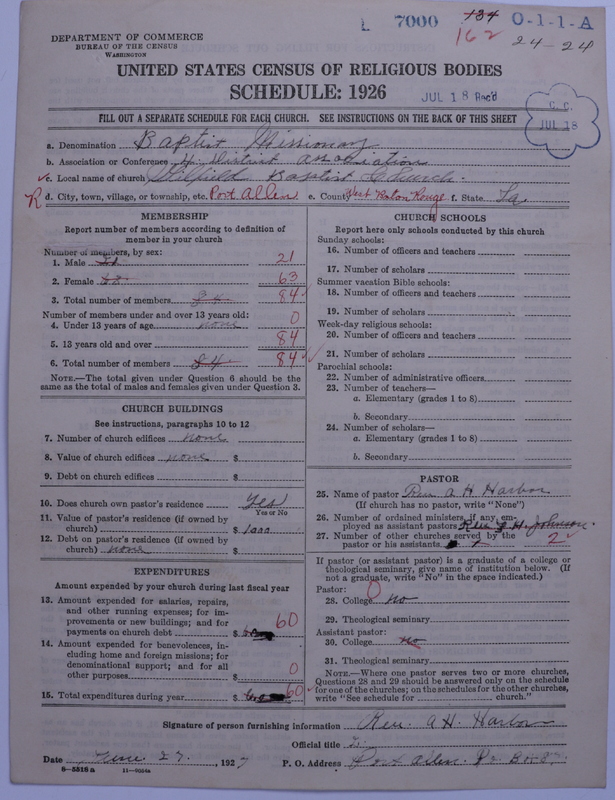 L 7000 134 O-1-1-A
162 24-24
DEPARTMENT OF COMMERCE
BUREAU OF THE CENSUS
WASHINGTON
UNITED STATES CENSUS OF RELIGIOUS BODIES
SCHEDULE: 1926
JUL 18 Rec'd
C. C.
JUL 18
FILL OUT A SEPARATE SCHEDULE FOR EACH CHURCH. SEE INSTRUCTIONS ON THE BACK OF THIS SHEET
a. Denomination Baptist Missionary
b. Association or Conference 4 District association
c. Local name of church Baptist Church
R d. City, town, village, or township, etc. Port Allen e. County West Baton Rouge f. State La
MEMBERSHIP
Report number of members according to definition of
member in your church
Number of members, by sex:
1. Male 21 21
2. Female 63 63
3. Total number of members 84 84
Number of members under and over 13 years old:
4. Under 13 years of age none 0
5. 13 years old and over 84
6. Total number of members 84 84
NOTE.—The total given under Question 6 should be the
same as the total of males and females given under Question 3.
CHURCH BUILDINGS
See instructions, paragraphs 10 to 12
7. Number of church edifices none
8. Value of church edifices none $
9. Debt on church edifices $
10. Does church own pastor's residence Yes
Yes or No
11. Value of pastor's residence (if owned by
church) $ 1000
12. Debt on pastor's residence (if owned by
church) none $
EXPENDITURES
Amount expended by your church during last fiscal year
13. Amount expended for salaries, repairs,
and other running expenses; for im-
provements or new buildings; and for
payments on church debt $ 60
14. Amount expended for benevolences, in-
cluding home and foreign missions; for
denominational support; and for all
other purposes $ 0
15. Total expenditures during year $ 60
CHURCH SCHOOLS
Report here only schools conducted by this church
Sunday schools:
16. Number of officers and teachers
17. Number of scholars
Summer vacation Bible schools:
18. Number of officers and teachers
19. Number of scholars
Week-day religious schools:
20. Number of officers and teachers
21. Number of scholars
Parochial schools:
22. Number of administrative officers
23. Number of teachers—
a. Elementary (grades 1 to 8)
b. Secondary
24. Number of scholars—
a. Elementary (grades 1 to 8)
b. Secondary
PASTOR
25. Name of pastor Rev. A H Harbor
(If church has no pastor, write "None")
26. Number of ordained ministers, if any, em-
ployed as assistant pastors Rev J. H. Johnson
27. Number of other churches served by the
pastor or his assistants 2
If pastor (or assistant pastor) is a graduate of a college or
theological seminary, give name of institution below. (If
not a graduate, write "No" in the space indicated.)
Pastor: 0
28. College no
29. Theological seminary
Assistant pastor:
30. College no
31. Theological seminary
NOTE.—Where one pastor serves two or more churches,
Questions 28 and 29 should be answered only on the schedule
for one of the churches; on the schedules for the other churches,
write "See schedule for church."
Signature of person furnishing information Rev. A H. Harbor
Official title
Date June 27, 1927 P. O. Address Port Allen
8-5518 a